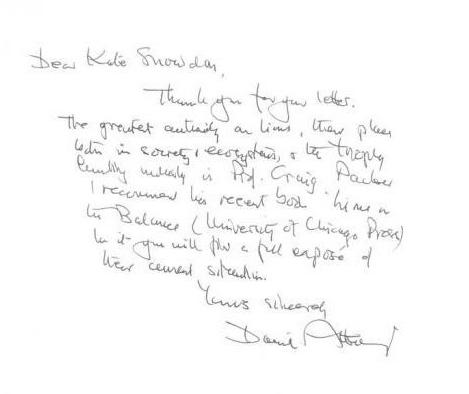 Dear Kate Snowdon,
Thank you for your letter.
The greatest authority on lions, their place
both in society & ecosystems, & the trophy
hunting industry is Prof. Craig Packer
I recommend his recent book Lions in
the Balance (University of Chicago Press)
In it you will find a full exposé of
their current situation.
Yours sincerely
David